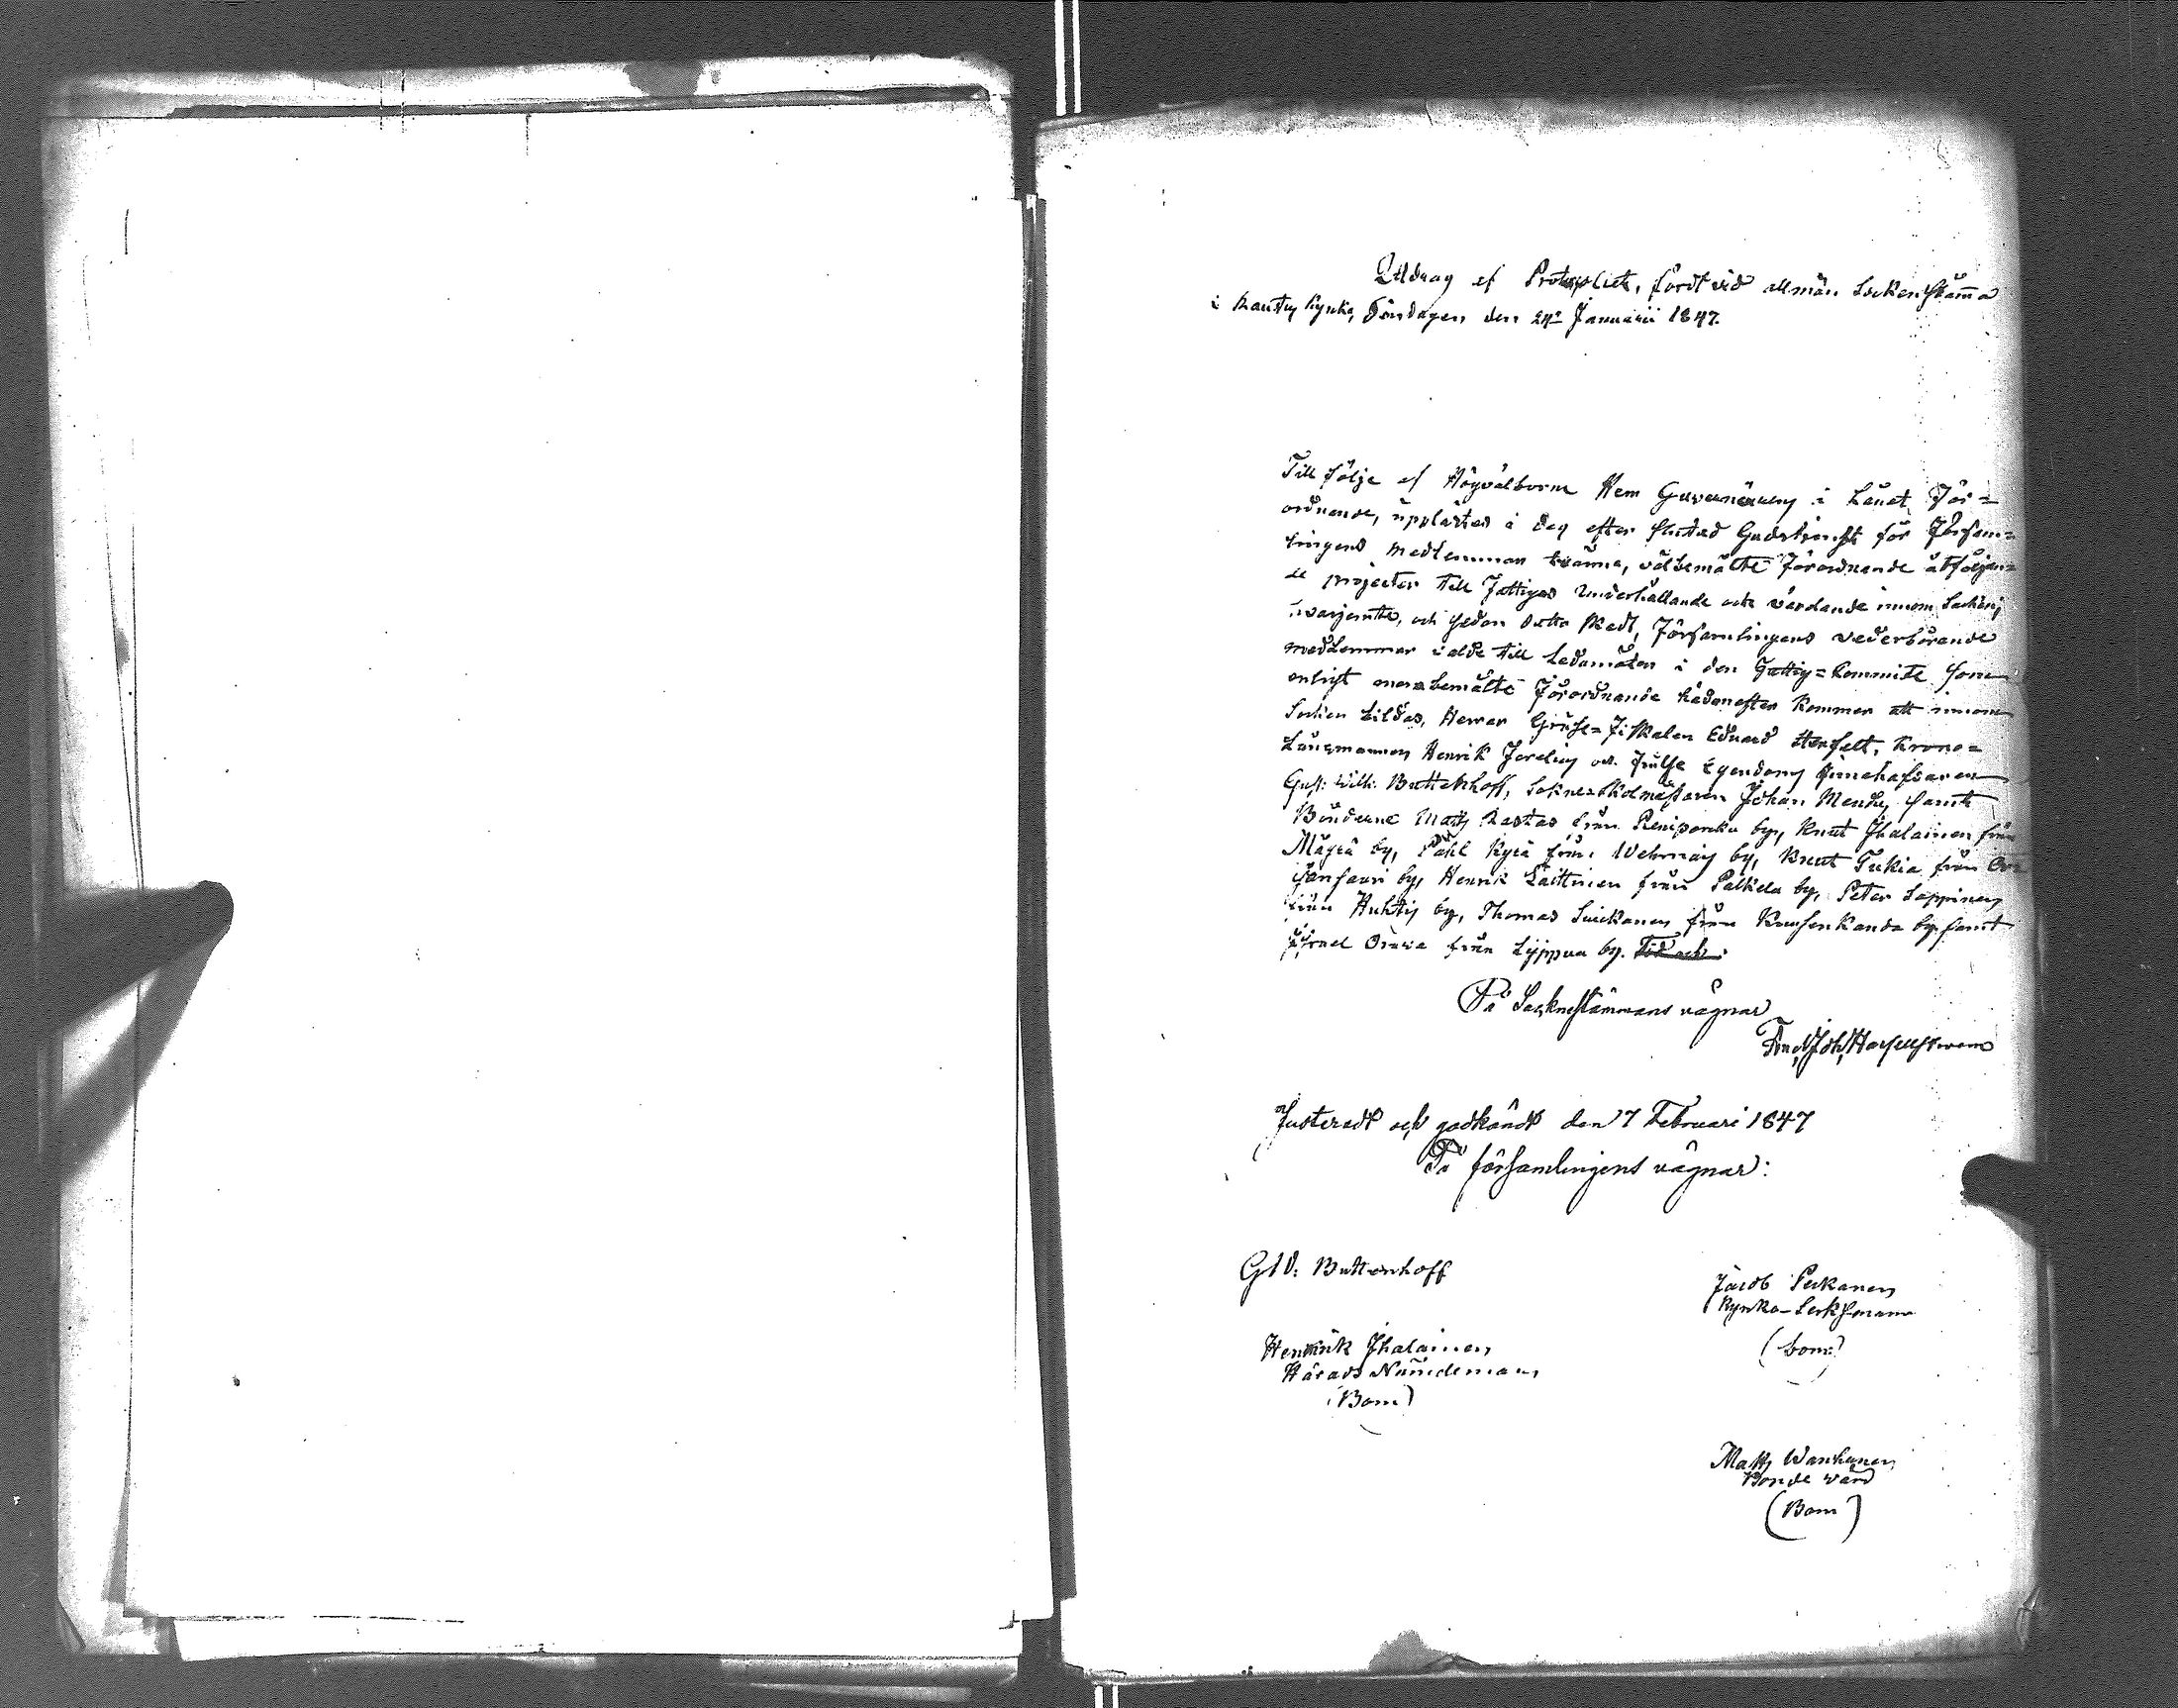 Utdrag af Protocollet, fördt vid allmän Sockenstämma
i Kautu Kyrka, Söndagen den 24de Januarii 1847.
Till följe af Högvälborne Herr Guverneuren i Länet För=
ordnande, upplästes i dag efter slutad Gudstienst för Försam=
lingens medlemmar tvänne, välbemälte Förordnande åtföljan=
de projecter till Fattigas underhållande och vårdande inom Socknen
varjemte, och sedan detta skedt, Församlingens vederbörande
medlemmar valde till Ledamöter i den Fattig=Kommité som
enligt merabemälte Förordnande hädanefter kommer att inom
Socken bildas, Herrar Gräns=Fiskalen Eduard, Krono=
Länsmannen Henrik och Egendoms innehafvaren
Gust: Wilh: Buttenhoff, Sockneskolmästaren Johan samt
Bönderne Matts Rastas från by, Knut Ihalainen från
Mägrä by, Påhl Kyrä från by, Knut Tukia från
by, Henrik Laittinen från Palkela by, Peter Lappinen
från Huhtis by, Thomas från Krusenkanda by samt
Israel Orawa från Lyppua by.
På Socknestämmans vägnar
Justeradt och godkändt den 7 Februari 1847
På församlingens vägnar:
G W: Buttenhoff
Jacob Pekanen
Kyrko-
(bom)
Henrik Ihalainen
Härads Nämndeman
(Bom)
Matts
Bonde värd
(Bom)